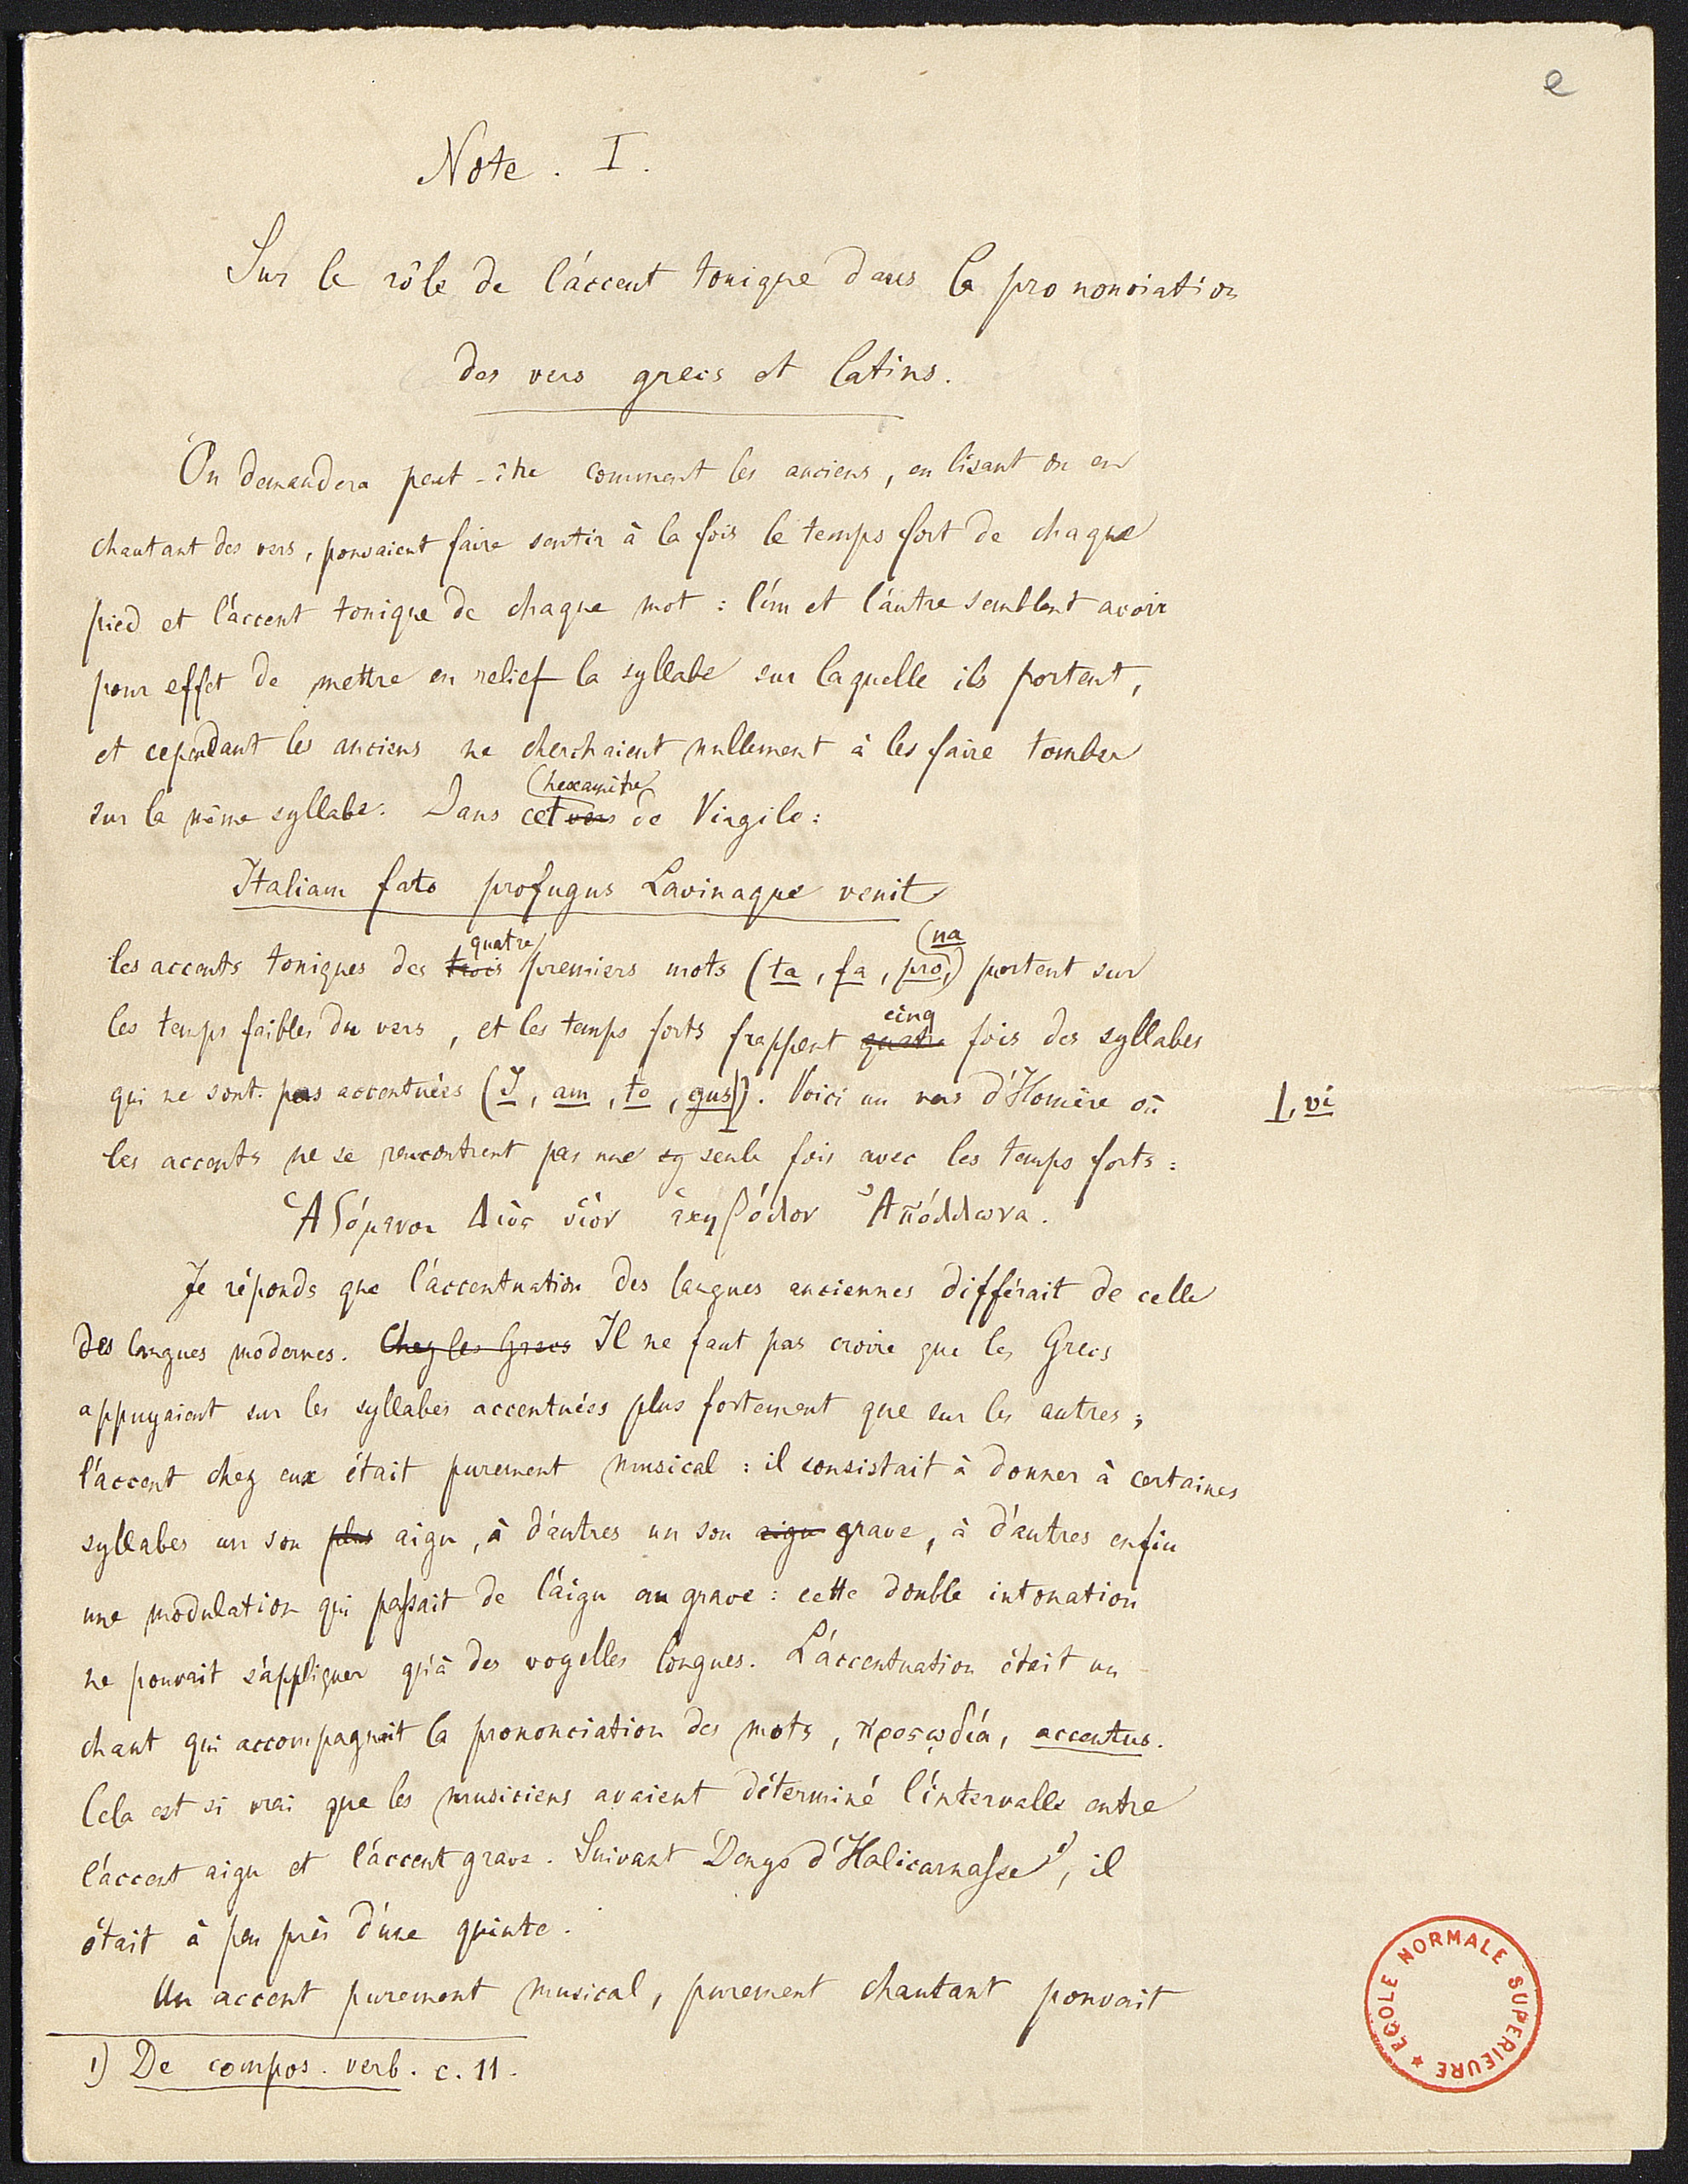 e
Note. I.
Sur le rôle de l'accent tonique dans la prononciation
des vers grecs et latins.
On demandera peut-être comment les anciens, en lisant ou en
chantant des vers, pouvaient faire sentir à la fois le temps fort de chaque
pied et l'accent tonique de chaque mot : l'un et l'autre semblent avoir
pour effet de mettre en relief la syllabe sur laquelle ils portent,
et cependant les anciens ne cherchaient nullement à les faire tomber
hexamètre
sur la même syllabe. Dans cet vers de Virgile :
Italiam fato profugus Lavinaque venit
quatre na
les accents toniques des trois premiers mots (ta, fa, pro,) portent sur
cinq
les temps faibles du vers, et les temps forts frappent quatre fois des syllabes
qui ne sont pas accentuées (I, am, to, gus). Voici un vers d'Homère où
, vi
les accents ne se rencontrent pas une sy seule fois avec les temps forts :
Ἁζόμενοι Διὸς υἱὸν ἑκηβόλον Ἀπόλλωνα.
Je réponds que l'accentuation des langues anciennes différait de celle
des langues modernes. Chez les Grecs Il ne faut pas croire que les Grecs
appuyaient sur les syllabes accentuées plus fortement que sur les autres ;
l'accent chez eux était purement musical : il consistait à donner à certaines
syllabes un son plus aigu, à d'autres un son aigu grave, à d'autres enfin
une modulation qui passait de l'aigu au grave : cette double intonation
ne pouvait s'appliquer qu'à des voyelles longues. L'accentuation était un
chant qui accompagnait la prononciation des mots, προσῳδία, accentus.
Cela est si vrai que les musiciens avaient déterminé l'intervalle entre
l'accent aigu et l'accent grave. Suivant Denys d'Halicarnasse 1), il
était à peu près d'une quinte.
Un accent purement musical, purement chantant pouvait
1) De compos. verb. c. 11.
ECOLE NORMALE SUPERIEURE